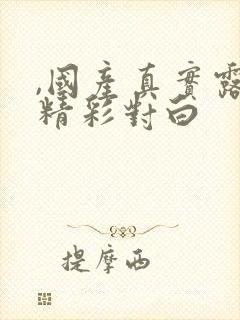 ,國產真實露
精彩對白
提摩西